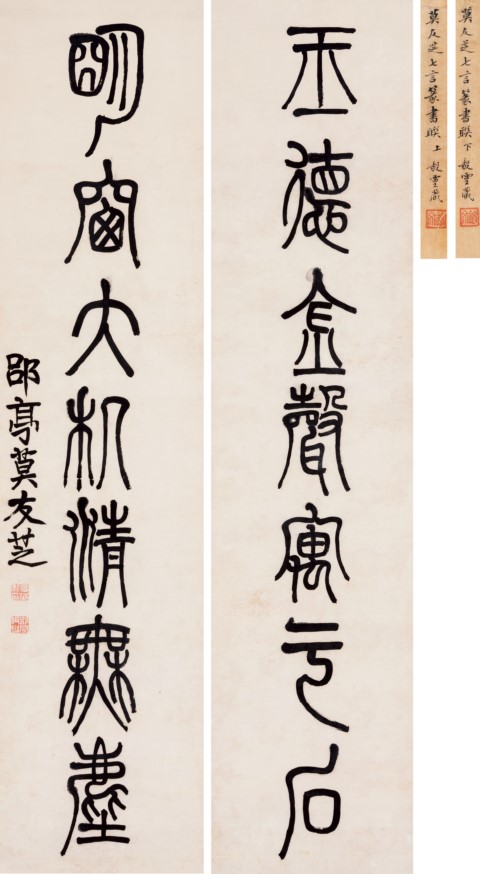 玉德金聲寓于石
明窗大几清無塵
郘亭莫友芝
莫友芝七言篆書聯上
莫友芝七言篆書聯下